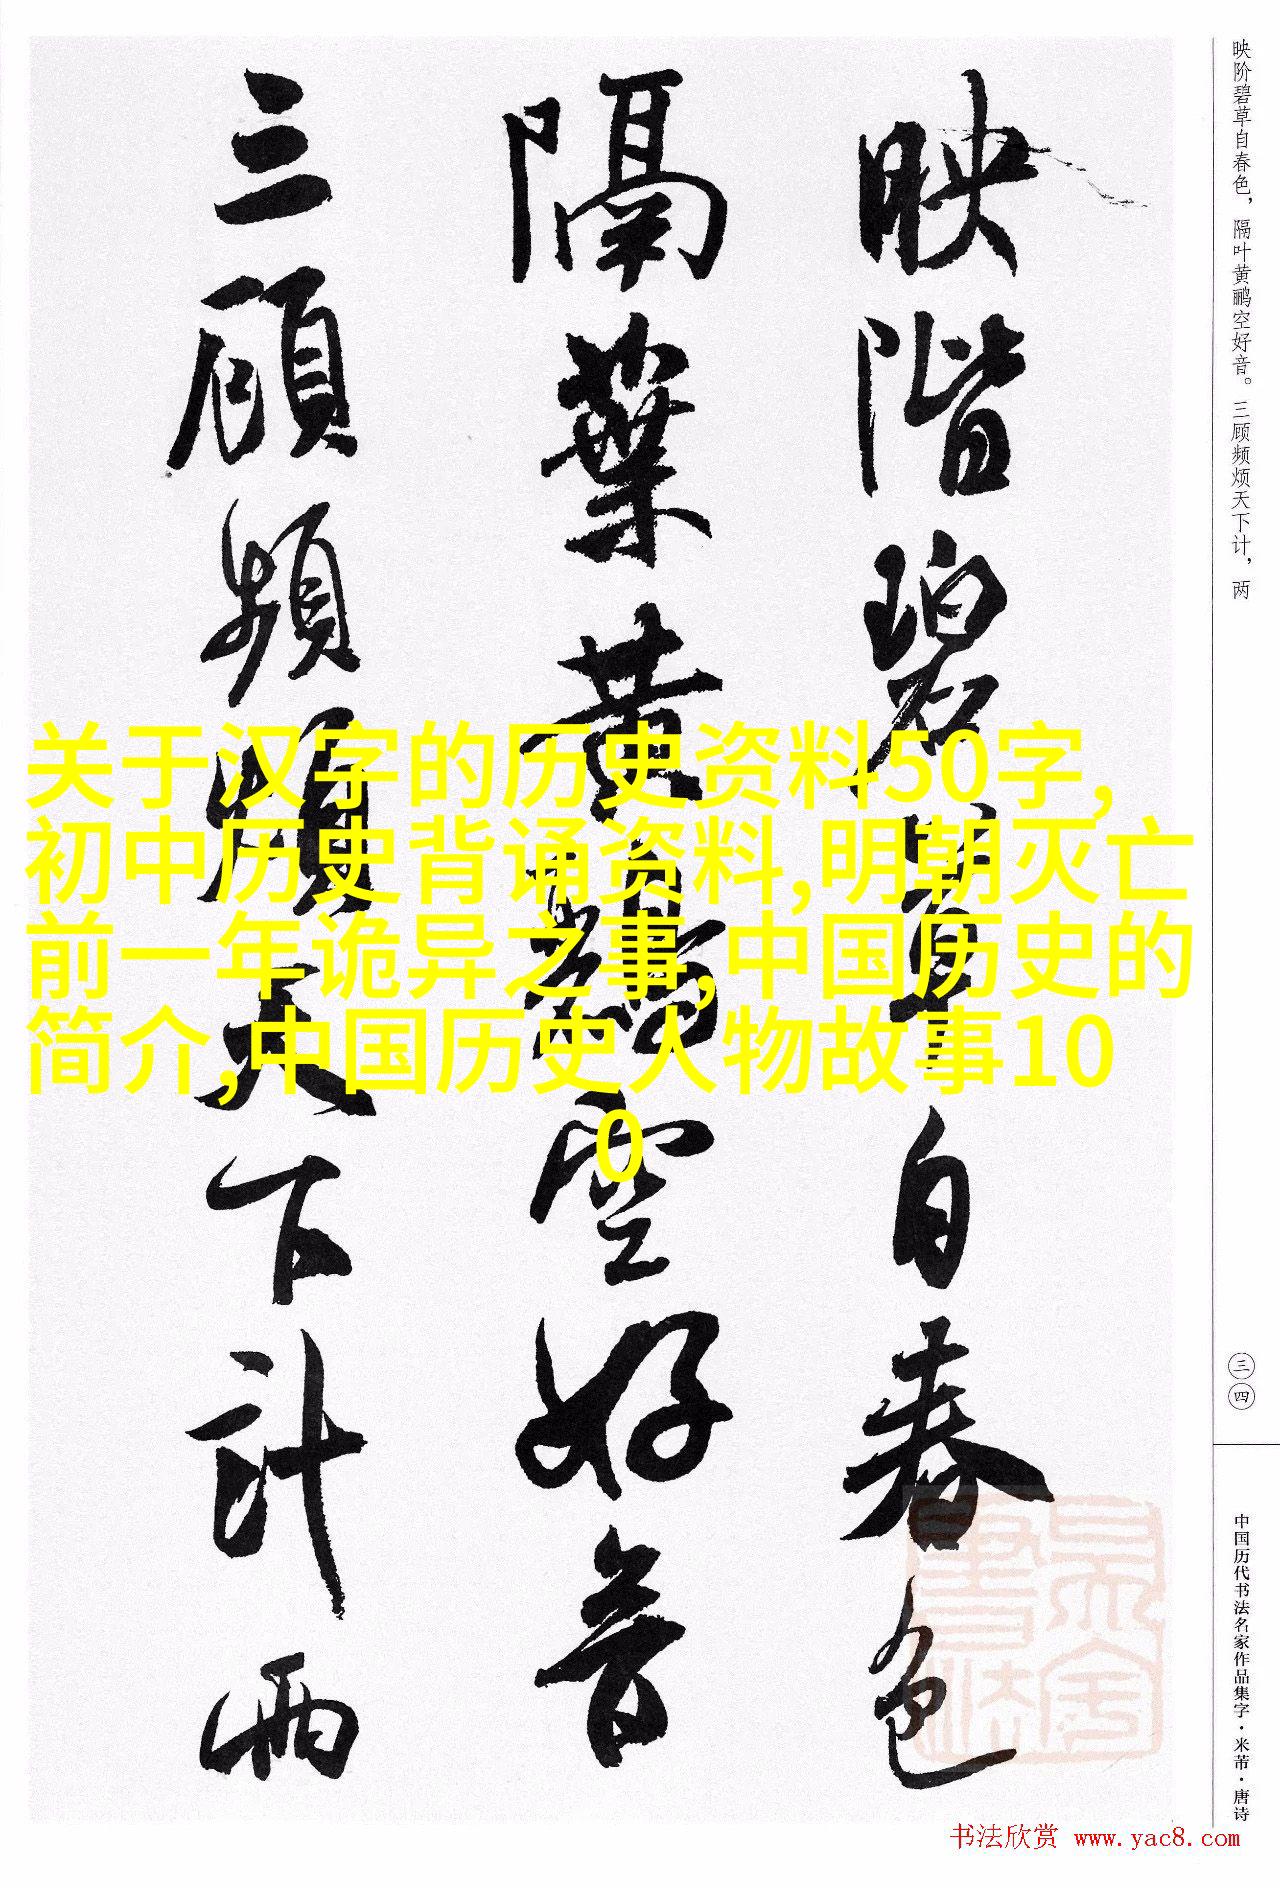 映阶碧草自春色，隔叶黄鹂空好音。三顾频烦天下计，两
映階碧草自春色
隔葉黄鸝空好音
三顧頻煩天下計兩
关于汉字的历史资料50字,
初中历史背诵资料,明朝灭亡
前一年诡异之事,中国历史的
简介,中国历史人物故事10
0
三四
中国历代书法名家作品集字·米芾·唐诗
书法欣赏 www.yac8.com